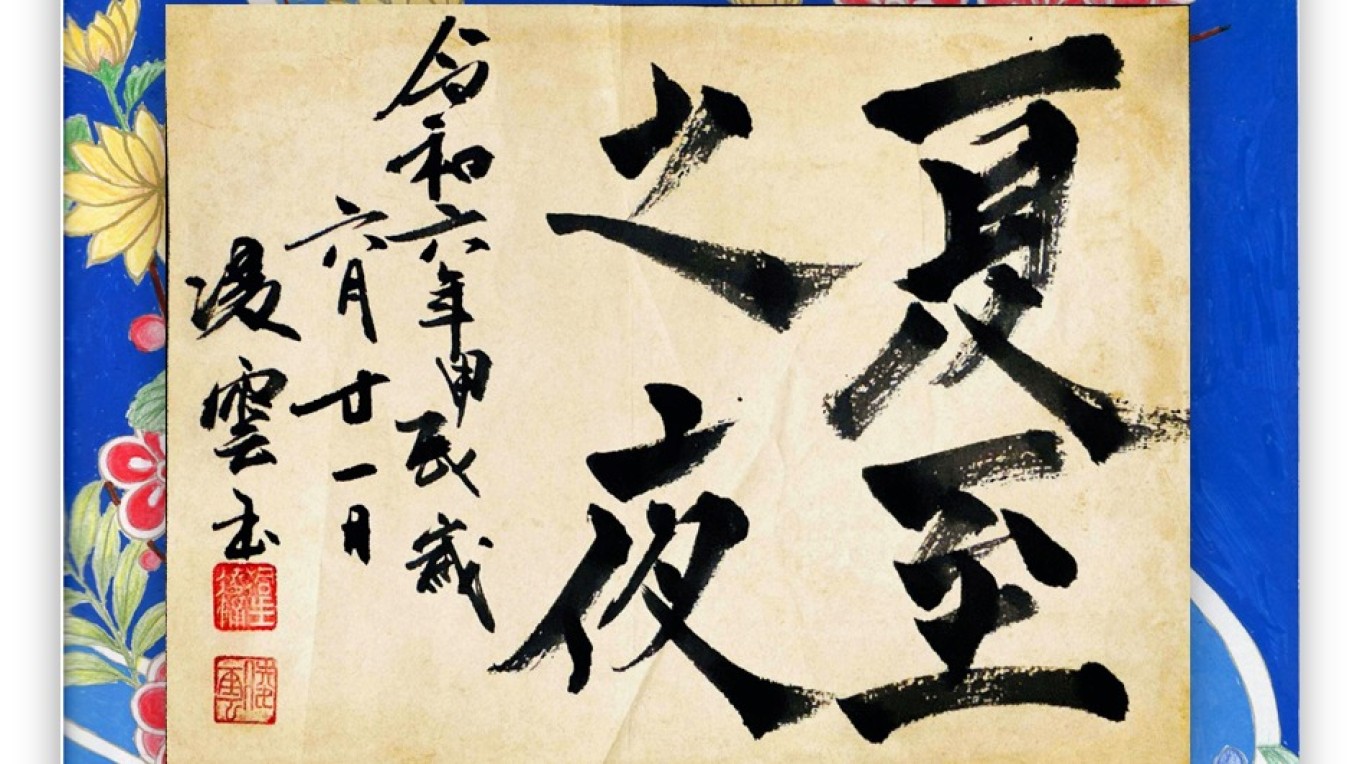 夏至
之夜
令和六年甲辰歳
六月廿一日
雲